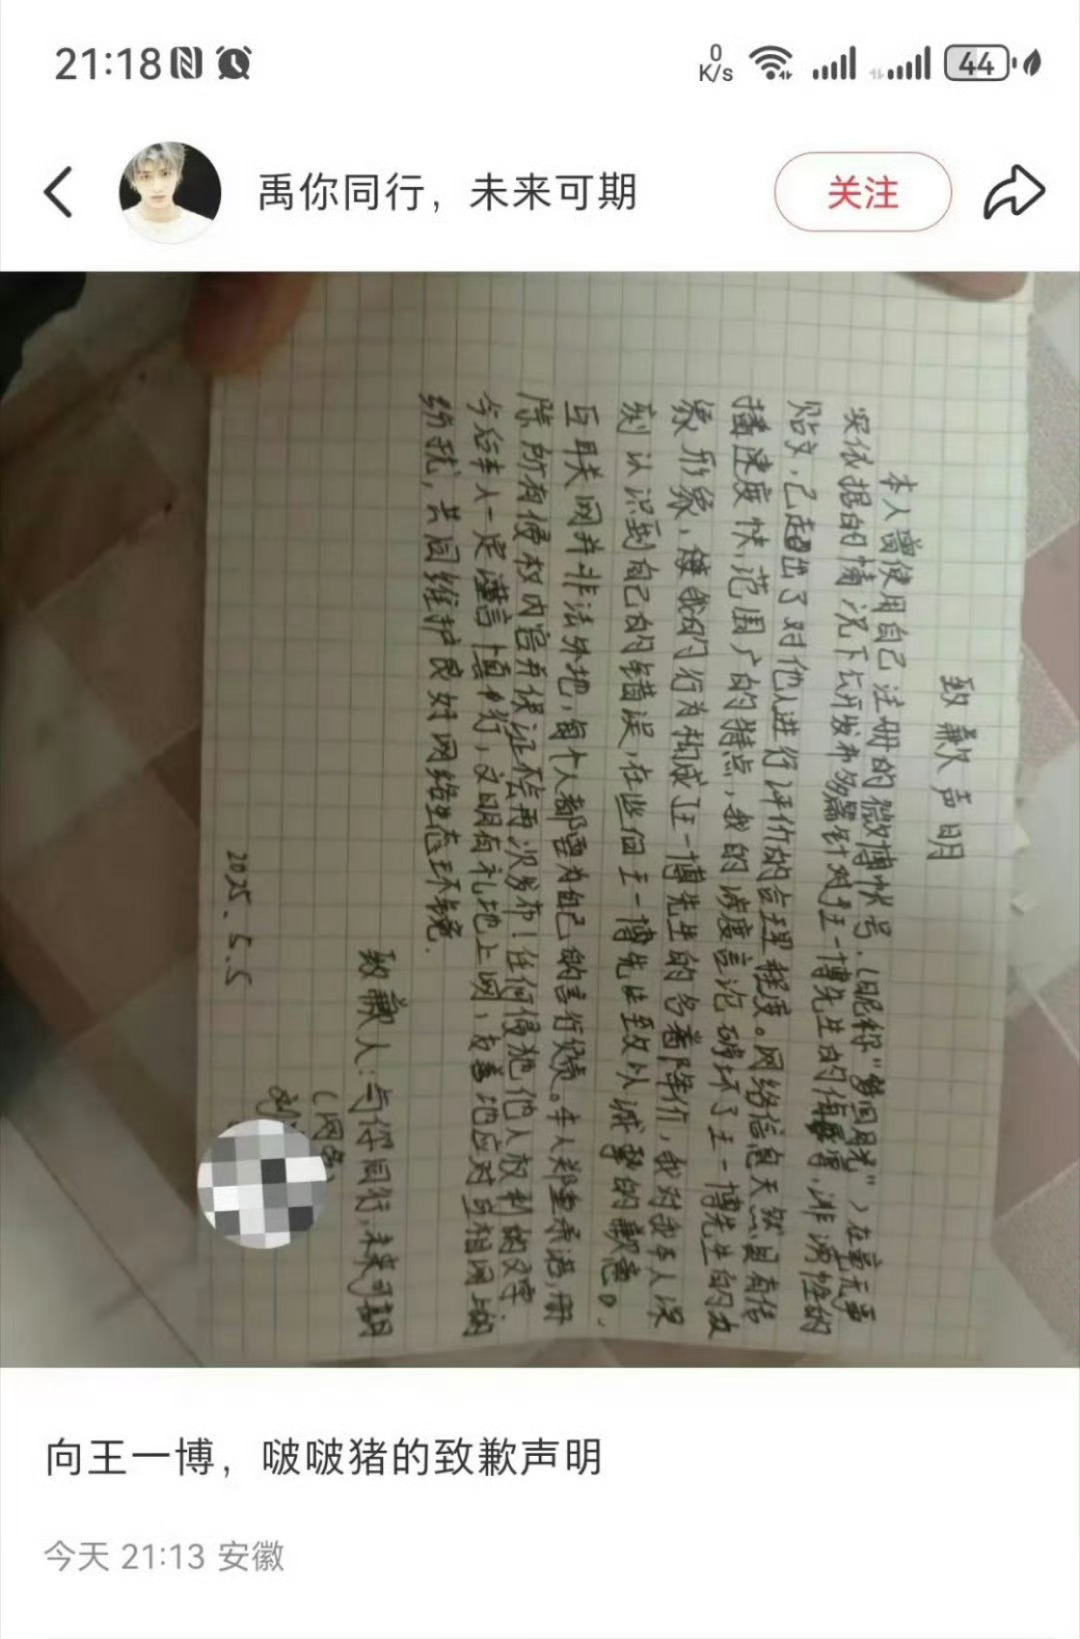 21:18
0
K/s
44
禹你同行，未来可期
关注
致歉声明
本人曾使用自己注册的微博帐号（昵称“梦回月光”）在毫无事
实依据的情况下公开发布多篇针对王一博先生的侮辱，诽谤性的
贴文，已超出了对他人进行评价的合理程度。网络信息天然具有传
播速度快，范围广的特点，我的过度言论破坏了王一博先生的
象形象，使我的行为构成王一博先生的名誉降价，我对我本人深
刻认识到自己的错误，在此向王一博先生致以诚挚的歉意。
互联网并非法外地，每个人都要为自己的言行负责。本人郑重承诺，删
除所有侵权内容并保证不会再次发布！任何侵犯他人权利的文字
今后本人一定谨言慎行，文明有礼地上网，友善地应对互相网上的
纷扰，共同维护良好网络生态环境.
致歉人：与你同行，未来可期
（网名）
2025.5.5
向王一博，啵啵猪的致歉声明
今天 21:13 安徽